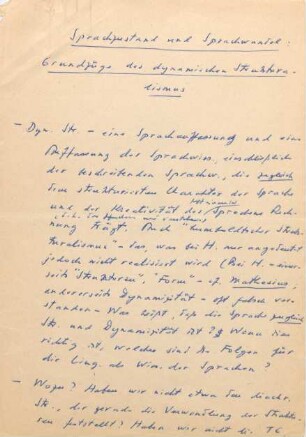 Sprachzustand und Sprachwandel:
Grundzüge des dynamischen Struktura-
lismus
- Dyn. Str. - eine Sprachauffassung und eine
Auffassung der Sprachwiss., einschließlich
der beschreibenden Sprachw., die zugleich
dem strukturierten Charakter der Sprache
und der Kreativität des Sprechens Rech-
nung trägt. Auch "Humboldtscher Struk-
turalismus" - das, was bei H. nur angedeutet
jedoch nicht realisiert wird (Bei H. - einer-
seits "Strukturen", "Form" - cf. Mathesius,
andererseits Dynamizität - oft falsch ver-
standen - Was heißt, daß die Sprache zugleich
Str. und Dynamizität ist? Wenn dies
richtig ist, welches sind die Folgen für
die Ling. als Wiss. der Sprachen?
- Wozu? Haben wir nicht etwa den diachr.
Str., der gerade die Umwandlung der Struktu-
ren feststellt? Haben wir nicht die T. G.